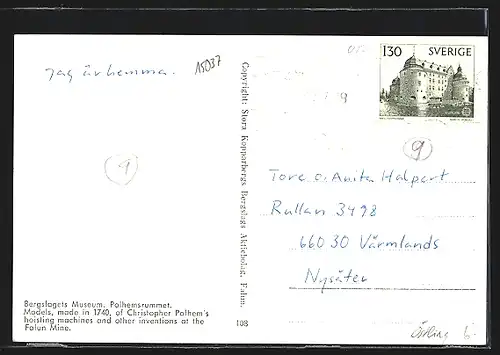 15037
130 SVERIGE
Jag är hemma.
9
9
Copyright: Stora Kopparbergs Bergslags Aktiebolag, Falun.
Tore o. Anita Halpert
Rullan 3498
660 30 Värmlands
Nysäter
Bergslagets Museum. Polhemsrummet.
Models, made in 1740, of Christopher Polhem's
hoisting machines and other inventions at the
Falun Mine.
108